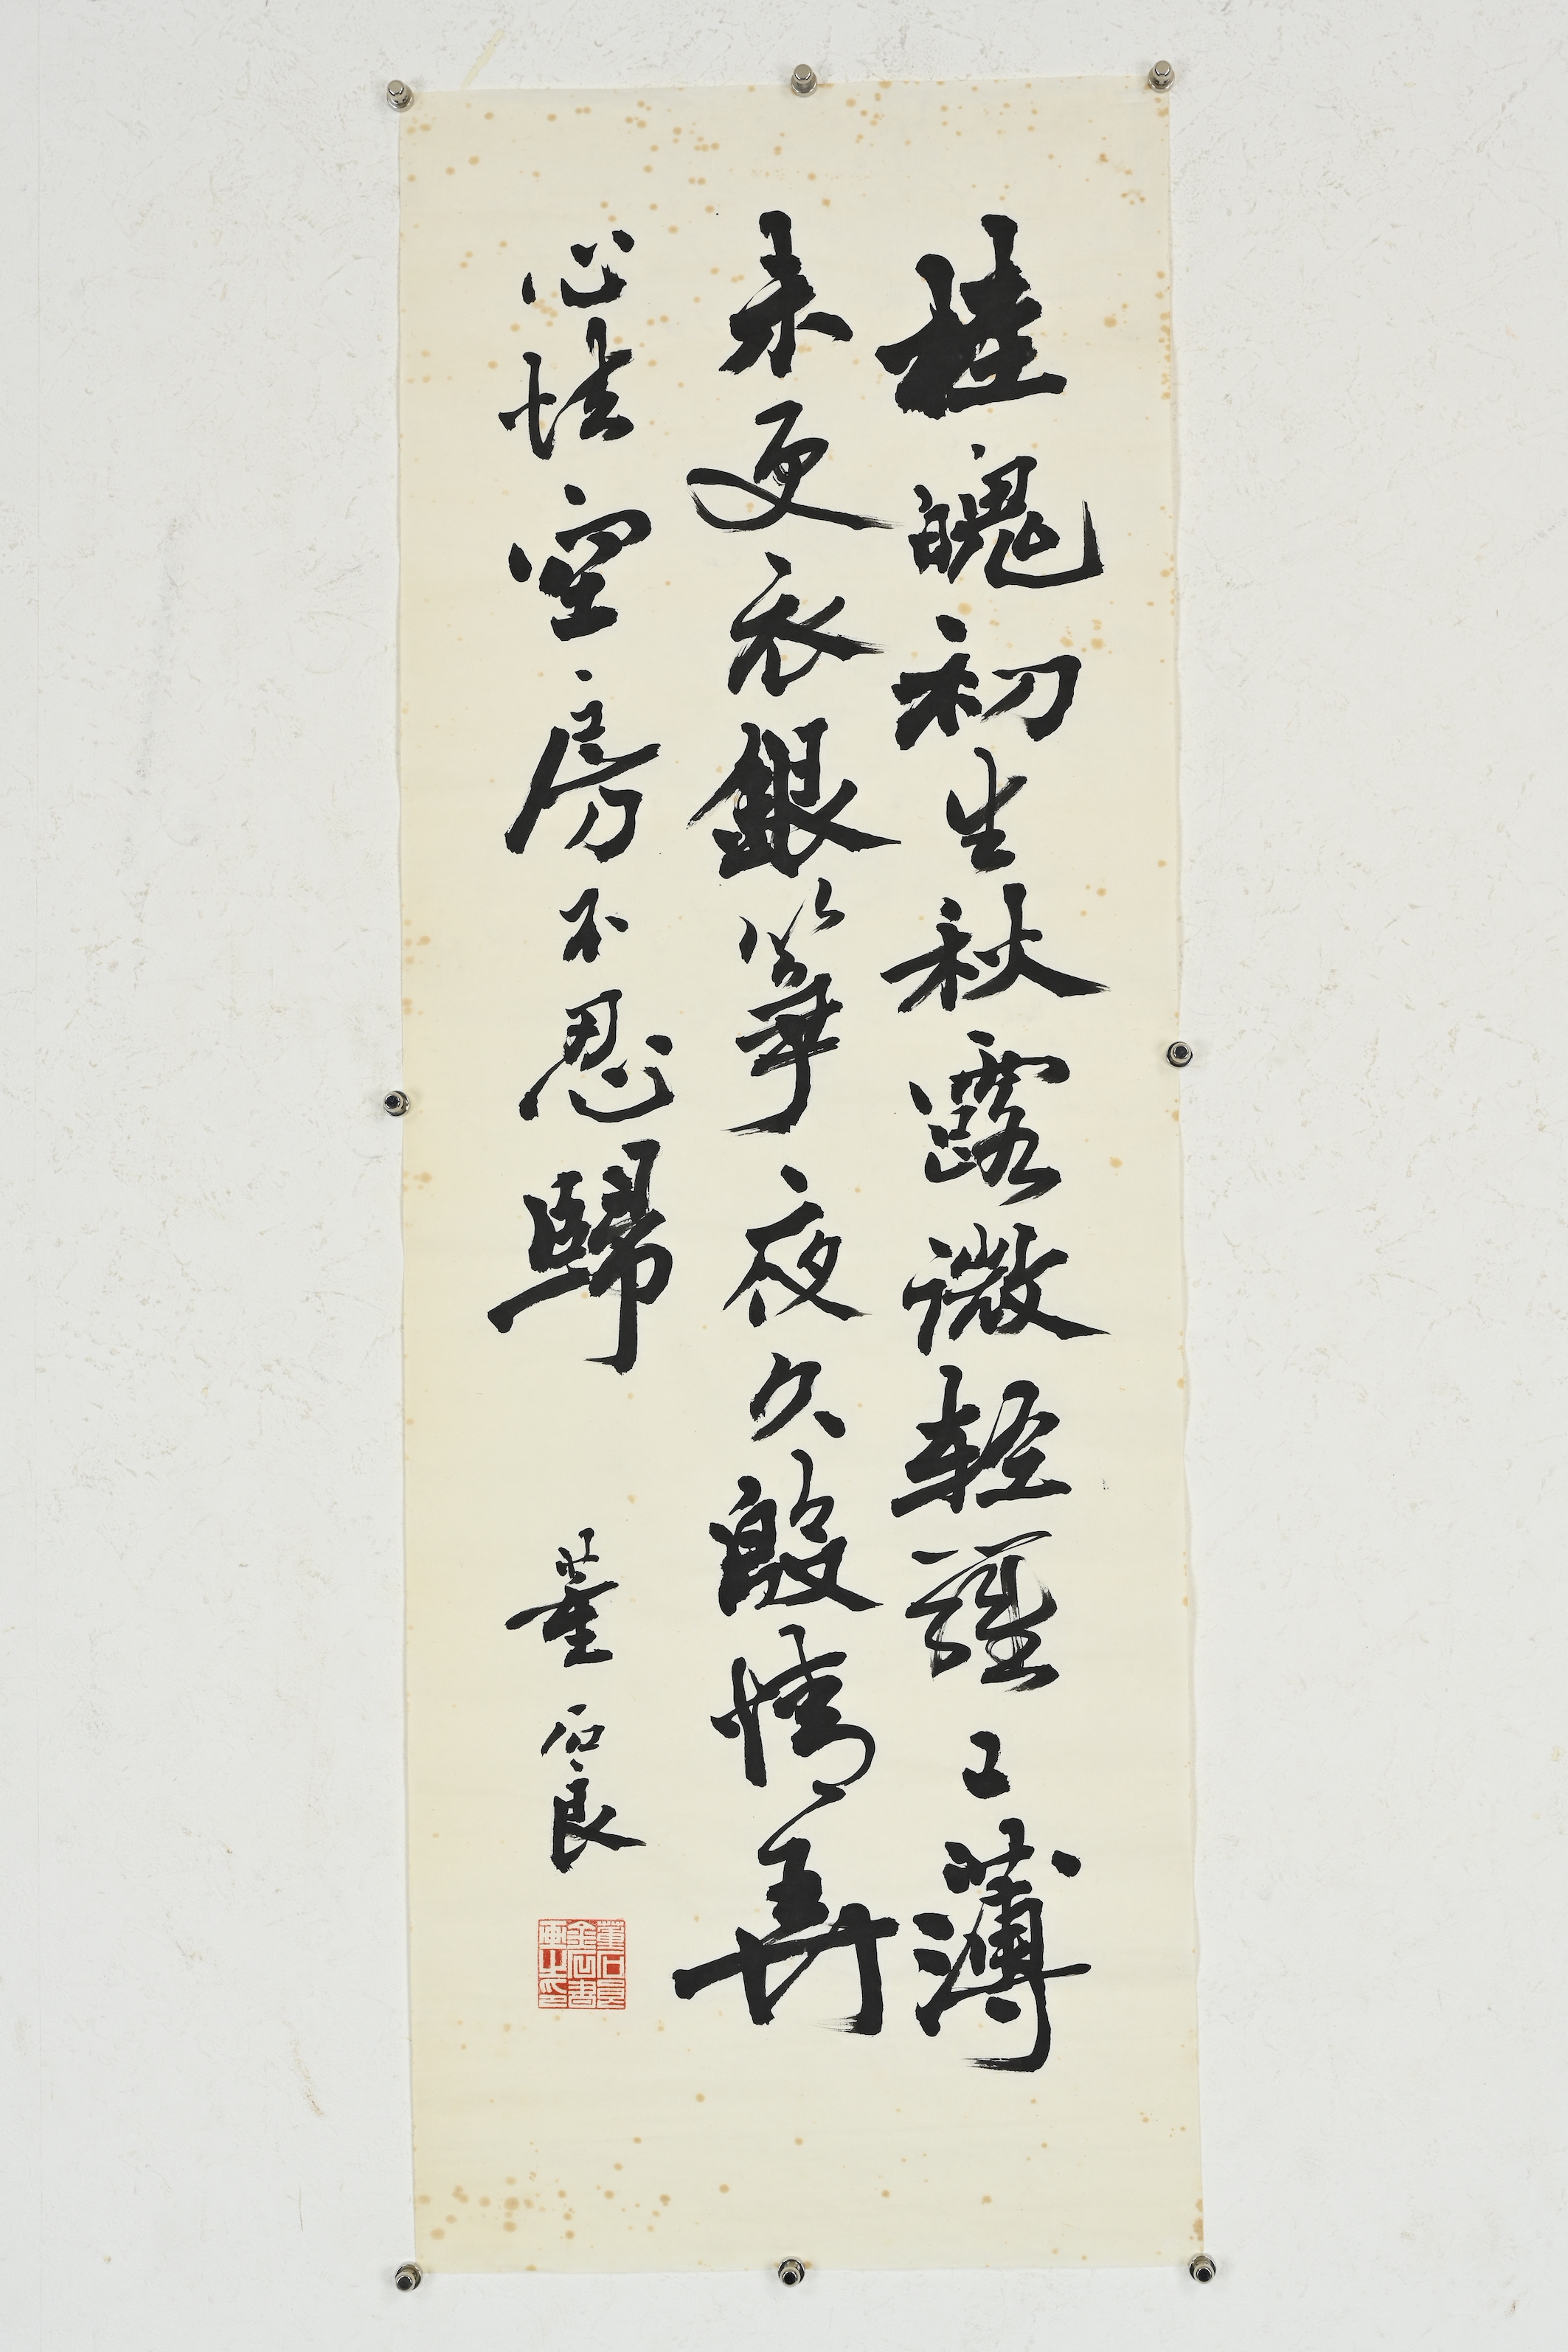 桂魄初生秋露微輕羅已薄
未更衣銀箏夜久殷情弄
心怯空房不忍歸
董石良
董石良金石書畫之印